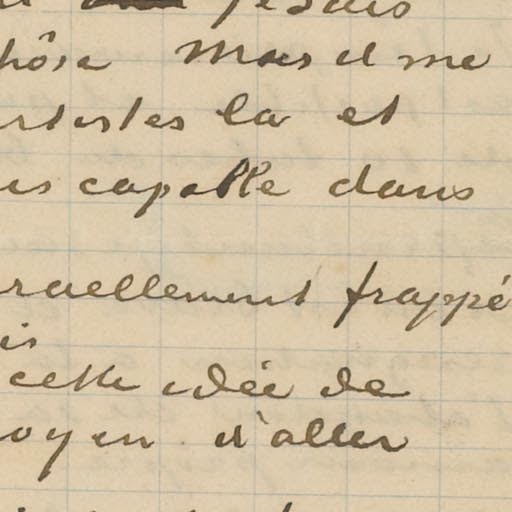 hôse Mais il me
artistes là et
es capable dans
ruellement frappé
is
cette idée de
oyen d'aller